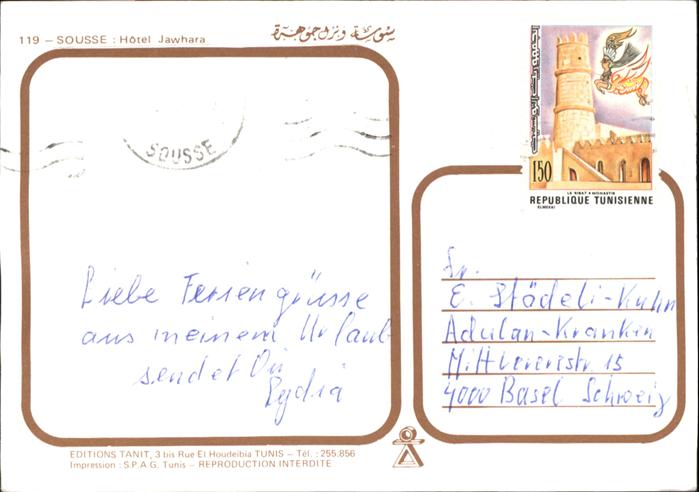 119 – SOUSSE : Hôtel Jawhara
سوسة ونزل جوهرة
SOUSSE
150
LE RIBAT MONASTIR
REPUBLIQUE TUNISIENNE
ELMEKKI
Liebe Feriengrüsse
aus meinem Urlaub
sendet Dir
Lydia
Fr.
E. Städeli-Kuhn
Adulan-Kranken
Mittlererstr. 15
4000 Basel Schweiz
EDITIONS TANIT, 3 bis Rue El Houdeibia TUNIS – Tél. : 255.856
Impression : S.P.A.G. Tunis – REPRODUCTION INTERDITE